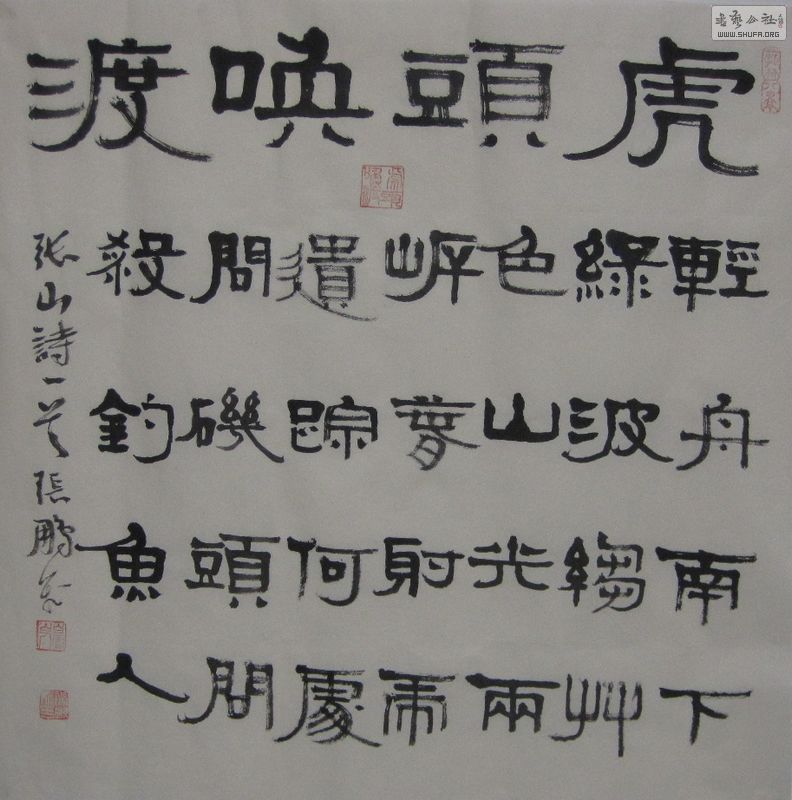 書藝公社
WWW.SHUFA.ORG
虎頭喚渡
輕舟南下
綠波縐艸
色山光兩
岸春射虎
遺踪何處
問磯頭問
殺釣魚人
張山詩一首張鵬書